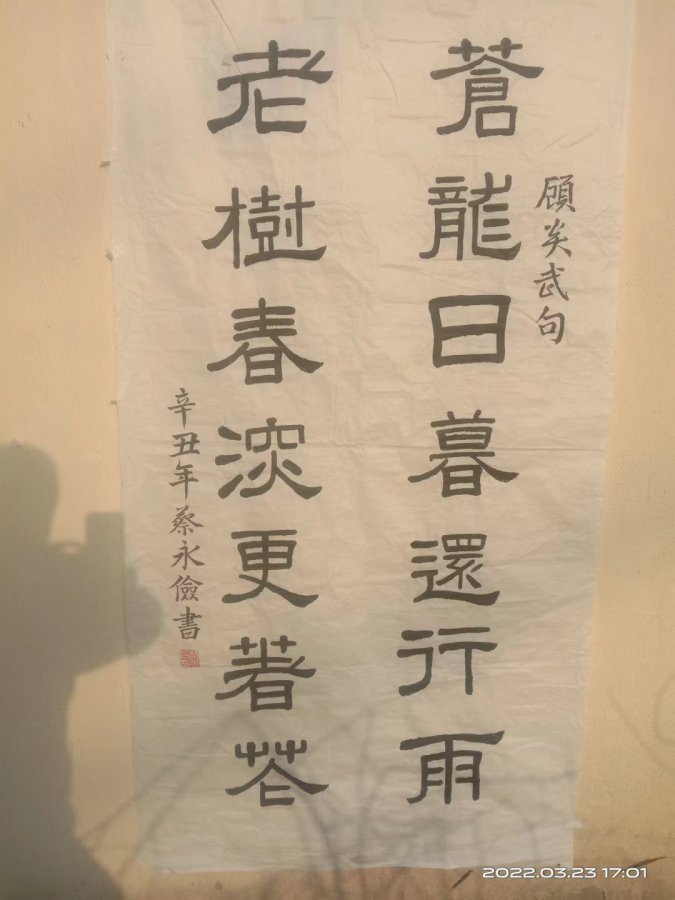 蒼龍日暮還行雨
顧炎武句
老樹春深更著花
辛丑年蔡永儉書
2022.03.23 17:01